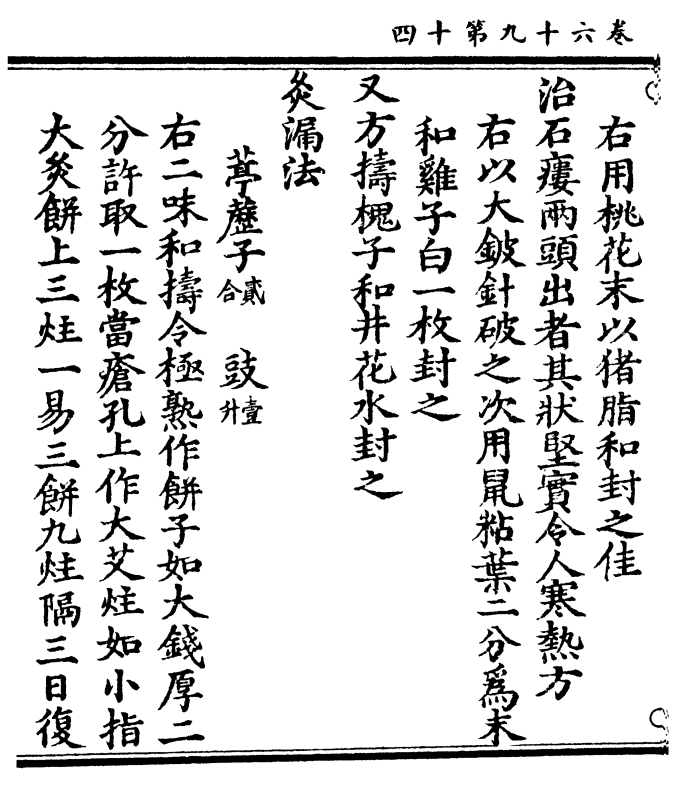 卷六十九第十四
右用桃花末以猪脂和封之佳
治石瘻兩頭出者其狀堅實令人寒熱方
右以大鈹針破之次用鼠粘葉二分爲末
和雞子白一枚封之
又方擣槐子和井花水封之
灸漏法
葶藶子貳合 豉壹升
右二味和擣令極熟作餅子如大錢厚二
分許取一枚當瘡孔上作大艾炷如小指
大灸餅上三炷一易三餅九炷隔三日復